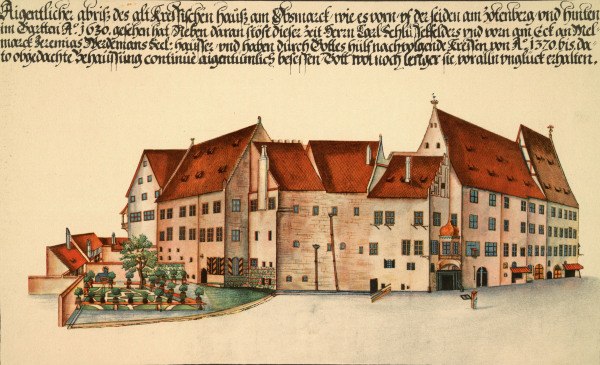 Aigentlicher abriß des alt Kressischen hauß am Obsmarck wie es vorn uf der seiden am Zotenberg und hinden
im Gartten A° 1630. gesehen hat Neben daran stost dieser zeit Herrn Carl Schlüsselfelders und vorn am Eck an Mel-
marck Jeremias Seel: heusser und haben durch Gottes hülf nachvolgende Kressen von A° 1370. bis da-
to obgedachte Behaussung continue aigentümlich besessen Gott wol noch lenger sie vor alln unglück erhalten.